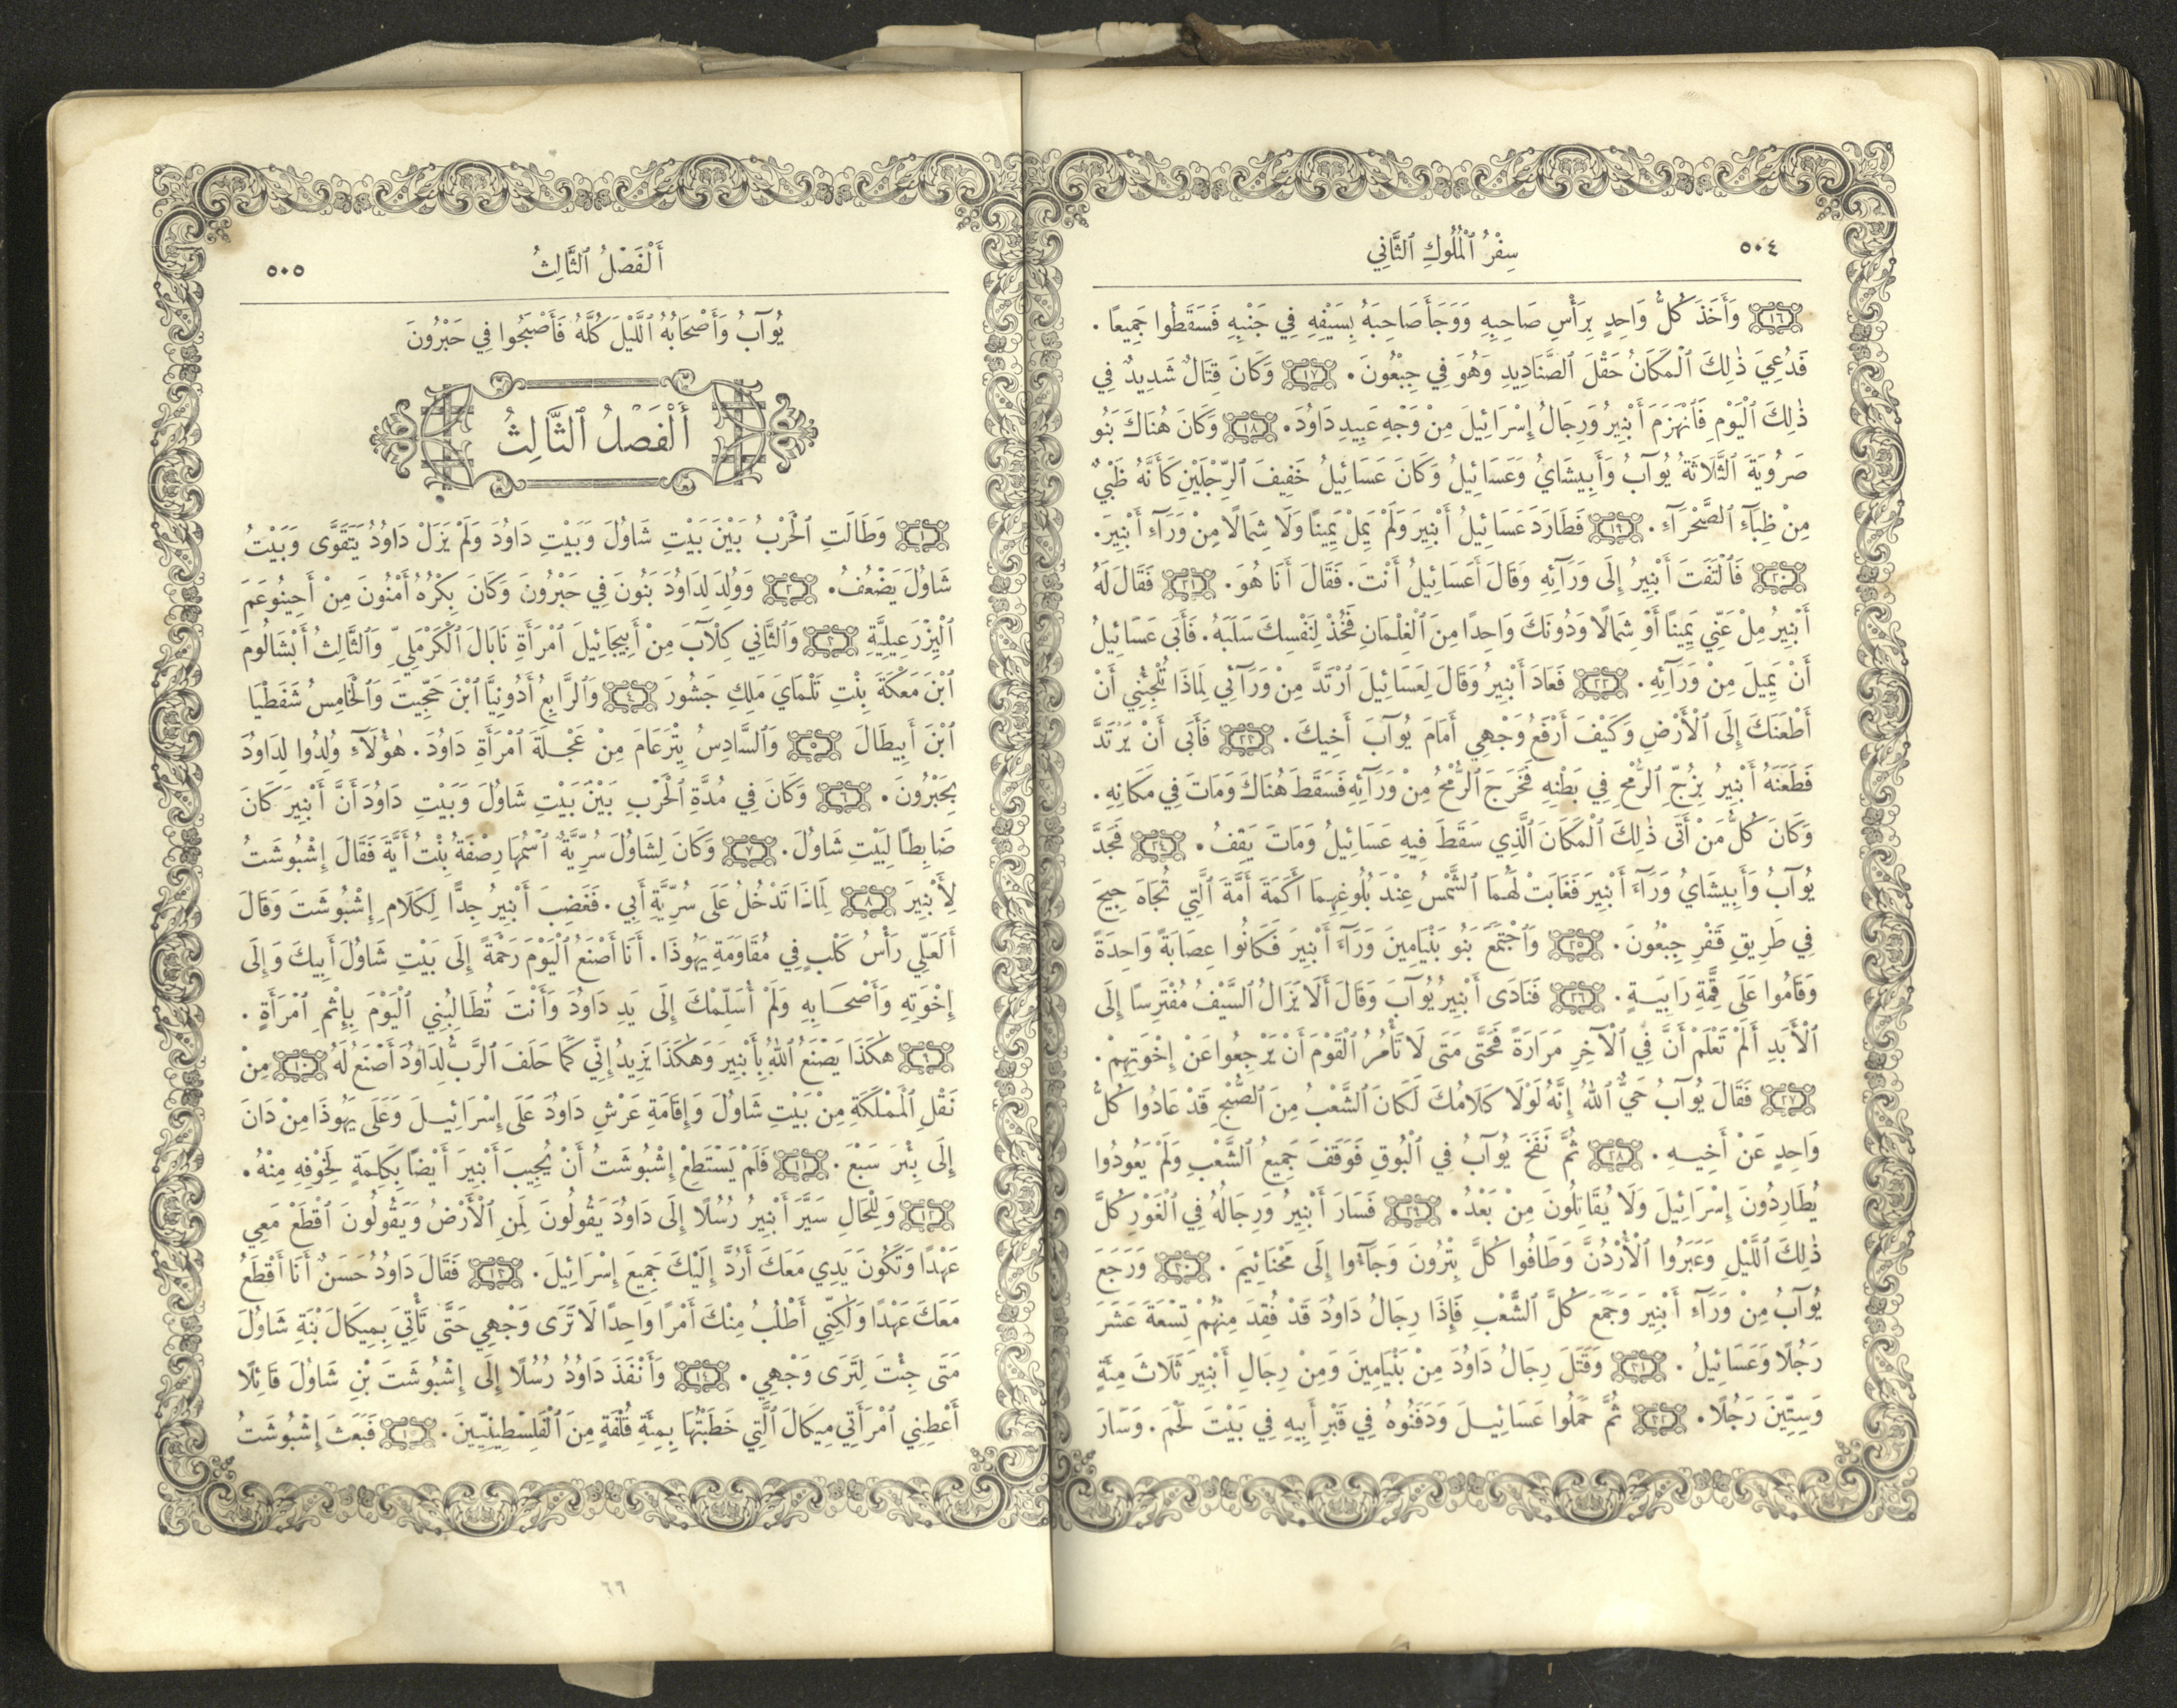 ٥٠٤
سِفْرُ ٱلْمُلُوكِ ٱلثَّانِي
١٦ وَأَخَذَ كُلُّ وَاحِدٍ بِرَأْسِ صَاحِبِهِ وَوَجَأَ صَاحِبَهُ بِسَيْفِهِ فِي جَنْبِهِ فَسَقَطُوا جَمِيعًا .
فَدُعِيَ ذٰلِكَ ٱلْمَكَانُ حَقْلَ ٱلصَّنَادِيدِ وَهُوَ فِي جِبْعُونَ . ١٧ وَكَانَ قِتَالٌ شَدِيدٌ فِي
ذٰلِكَ ٱلْيَوْمِ فَٱنْهَزَمَ أَبْنِيرُ وَرِجَالُ إِسْرَائِيلَ مِنْ وَجْهِ عَبِيدِ دَاوُدَ . ١٨ وَكَانَ هُنَاكَ بَنُو
صَرُويَةَ ٱلثَّلَاثَةُ يُوآبُ وَأَبِيشَايُ وَعَسَائِيلُ وَكَانَ عَسَائِيلُ خَفِيفَ ٱلرِّجْلَيْنِ كَأَنَّهُ ظَبْيٌ
مِنْ ظِبَآءِ ٱلصَّحْرَآءِ . ١٩ فَطَارَدَ عَسَائِيلُ أَبْنِيرَ وَلَمْ يَمِلْ يَمِينًا وَلَا شِمَالًا مِنْ وَرَآءِ أَبْنِيرَ .
٢٠ فَٱلْتَفَتَ أَبْنِيرُ إِلَى وَرَآئِهِ وَقَالَ أَعَسَائِيلُ أَنْتَ . فَقَالَ أَنَا هُوَ . ٢١ فَقَالَ لَهُ
أَبْنِيرُ مِلْ عَنِّي يَمِينًا أَوْ شِمَالًا وَدُونَكَ وَاحِدًا مِنَ ٱلْغِلْمَانِ فَخُذْ لِنَفْسِكَ سَلَبَهُ . فَأَبَى عَسَائِيلُ
أَنْ يَمِيلَ مِنْ وَرَآئِهِ . ٢٢ فَعَادَ أَبْنِيرُ وَقَالَ لِعَسَائِيلَ ٱرْتَدَّ مِنْ وَرَآئِي لِمَاذَا تُلْجِئُنِي أَنْ
أَطْعَنَكَ إِلَى ٱلْأَرْضِ وَكَيْفَ أَرْفَعُ وَجْهِي أَمَامَ يُوآبَ أَخِيكَ . ٢٣ فَأَبَى أَنْ يَرْتَدَّ
فَطَعَنَهُ أَبْنِيرُ بِزُجِّ ٱلرُّمْحِ فِي بَطْنِهِ فَخَرَجَ ٱلرُّمْحُ مِنْ وَرَآئِهِ فَسَقَطَ هُنَاكَ وَمَاتَ فِي مَكَانِهِ .
وَكَانَ كُلُّ مَنْ أَتَى ذٰلِكَ ٱلْمَكَانَ ٱلَّذِي سَقَطَ فِيهِ عَسَائِيلُ وَمَاتَ يَقِفُ . ٢٤ فَجَدَّ
يُوآبُ وَأَبِيشَايُ وَرَآءَ أَبْنِيرَ فَغَابَتْ لَهُمَا ٱلشَّمْسُ عِنْدَ بُلُوغِهِمَا أَكَمَةَ أَمَّةَ ٱلَّتِي تُجَاهَ جِيحَ
فِي طَرِيقِ قَفْرِ جِبْعُونَ . ٢٥ وَٱجْتَمَعَ بَنُو بَنْيَامِينَ وَرَآءَ أَبْنِيرَ فَكَانُوا عِصَابَةً وَاحِدَةً
وَقَامُوا عَلَى قِمَّةِ رَابِيَةٍ . ٢٦ فَنَادَى أَبْنِيرُ يُوآبَ وَقَالَ أَلَا يَزَالُ ٱلسَّيْفُ مُفْتَرِسًا إِلَى
ٱلْأَبَدِ أَلَمْ تَعْلَمْ أَنَّ فِي ٱلْآخِرِ مَرَارَةً فَحَتَّى مَتَى لَا تَأْمُرُ ٱلْقَوْمَ أَنْ يَرْجِعُوا عَنْ إِخْوَتِهِمْ .
٢٧ فَقَالَ يُوآبُ حَيٌّ ٱللهُ إِنَّهُ لَوْلَا كَلَامُكَ لَكَانَ ٱلشَّعْبُ مِنَ ٱلصُّبْحِ قَدْ عَادُوا كُلُّ
وَاحِدٍ عَنْ أَخِيهِ . ٢٨ ثُمَّ نَفَخَ يُوآبُ فِي ٱلْبُوقِ فَوَقَفَ جَمِيعُ ٱلشَّعْبِ وَلَمْ يَعُودُوا
يُطَارِدُونَ إِسْرَائِيلَ وَلَا يُقَاتِلُونَ مِنْ بَعْدُ . ٢٩ فَسَارَ أَبْنِيرُ وَرِجَالُهُ فِي ٱلْغَوْرِ كُلَّ
ذٰلِكَ ٱللَّيْلِ وَعَبَرُوا ٱلْأُرْدُنَّ وَطَافُوا كُلَّ بِتْرُونَ وَجَآءُوا إِلَى مَحْنَائِيمَ . ٣٠ وَرَجَعَ
يُوآبُ مِنْ وَرَآءِ أَبْنِيرَ وَجَمَعَ كُلَّ ٱلشَّعْبِ فَإِذَا رِجَالُ دَاوُدَ قَدْ فُقِدَ مِنْهُمْ تِسْعَةَ عَشَرَ
رَجُلًا وَعَسَائِيلُ . ٣١ وَقَتَلَ رِجَالُ دَاوُدَ مِنْ بَنْيَامِينَ وَمِنْ رِجَالِ أَبْنِيرَ ثَلَاثَ مِئَةٍ
وَسِتِّينَ رَجُلًا . ٣٢ ثُمَّ حَمَلُوا عَسَائِيلَ وَدَفَنُوهُ فِي قَبْرِ أَبِيهِ فِي بَيْتَ لَحْمَ . وَسَارَ
أَلْفَصْلُ ٱلثَّالِثُ
٥٠٥
يُوآبُ وَأَصْحَابُهُ ٱللَّيْلَ كُلَّهُ فَأَصْبَحُوا فِي حَبْرُونَ
أَلْفَصْلُ ٱلثَّالِثُ
١ وَطَالَتِ ٱلْحَرْبُ بَيْنَ بَيْتِ شَاوُلَ وَبَيْتِ دَاوُدَ وَلَمْ يَزَلْ دَاوُدُ يَتَقَوَّى وَبَيْتُ
شَاوُلَ يَضْعُفُ . ٢ وَوُلِدَ لِدَاوُدَ بَنُونَ فِي حَبْرُونَ وَكَانَ بِكْرُهُ أَمْنُونَ مِنْ أَحِينُوعَمَ
ٱلْيِزْرَعِيلِيَّةِ ٣ وَٱلثَّانِي كِلْآبَ مِنْ أَبِيجَائِيلَ ٱمْرَأَةِ نَابَالَ ٱلْكَرْمَلِيِّ وَٱلثَّالِثُ أَبْشَالُومَ
ٱبْنَ مَعْكَةَ بِنْتِ تَلْمَايَ مَلِكِ جَشُورَ ٤ وَٱلرَّابِعُ أَدُونِيَّا ٱبْنَ حَجِّيتَ وَٱلْخَامِسُ شَفَطْيَا
ٱبْنَ أَبِيطَالَ ٥ وَٱلسَّادِسُ يِتْرَعَامَ مِنْ عَجْلَةَ ٱمْرَأَةِ دَاوُدَ . هٰؤُلَآءِ وُلِدُوا لِدَاوُدَ
بِحَبْرُونَ . ٦ وَكَانَ فِي مُدَّةِ ٱلْحَرْبِ بَيْنَ بَيْتِ شَاوُلَ وَبَيْتِ دَاوُدَ أَنَّ أَبْنِيرَ كَانَ
ضَابِطًا لِبَيْتِ شَاوُلَ . ٧ وَكَانَ لِشَاوُلَ سُرِّيَّةٌ ٱسْمُهَا رِصْفَةُ بِنْتُ أَيَّةَ فَقَالَ إِشْبُوشَتُ
لِأَبْنِيرَ ٨ لِمَاذَا تَدْخُلُ عَلَى سُرِّيَّةِ أَبِي . فَغَضِبَ أَبْنِيرُ جِدًّا لِكَلَامِ إِشْبُوشَتَ وَقَالَ
أَلَعَلِّي رَأْسُ كَلْبٍ فِي مُقَاوَمَةِ يَهُوذَا . أَنَا أَصْنَعُ ٱلْيَوْمَ رَحْمَةً إِلَى بَيْتِ شَاوُلَ أَبِيكَ وَإِلَى
إِخْوَتِهِ وَأَصْحَابِهِ وَلَمْ أُسَلِّمْكَ إِلَى يَدِ دَاوُدَ وَأَنْتَ تُطَالِبُنِي ٱلْيَوْمَ بِإِثْمِ ٱمْرَأَةٍ .
٩ هٰكَذَا يَصْنَعُ ٱللهُ بِأَبْنِيرَ وَهٰكَذَا يَزِيدُ إِنِّي كَمَا حَلَفَ ٱلرَّبُّ لِدَاوُدَ أَصْنَعُ لَهُ ١٠ مِنْ
نَقْلِ ٱلْمَمْلَكَةِ مِنْ بَيْتِ شَاوُلَ وَإِقَامَةِ عَرْشِ دَاوُدَ عَلَى إِسْرَائِيلَ وَعَلَى يَهُوذَا مِنْ دَانَ
إِلَى بِئْرِ سَبْعَ . ١١ فَلَمْ يَسْتَطِعْ إِشْبُوشَتُ أَنْ يُجِيبَ أَبْنِيرَ أَيْضًا بِكَلِمَةٍ لِخَوْفِهِ مِنْهُ .
١٢ وَلِلْحَالِ سَيَّرَ أَبْنِيرُ رُسُلًا إِلَى دَاوُدَ يَقُولُونَ لِمَنِ ٱلْأَرْضُ وَيَقُولُونَ ٱقْطَعْ مَعِي
عَهْدًا وَتَكُونَ يَدِي مَعَكَ أَرُدُّ إِلَيْكَ جَمِيعَ إِسْرَائِيلَ . ١٣ فَقَالَ دَاوُدُ حَسَنٌ أَنَا أَقْطَعُ
مَعَكَ عَهْدًا وَلٰكِنِّي أَطْلُبُ مِنْكَ أَمْرًا وَاحِدًا لَا تَرَى وَجْهِي حَتَّى تَأْتِيَ بِمِيكَالَ بْنَةِ شَاوُلَ
مَتَى جِئْتَ لِتَرَى وَجْهِي . ١٤ وَأَنْفَذَ دَاوُدُ رُسُلًا إِلَى إِشْبُوشَتَ بْنِ شَاوُلَ قَائِلًا
أَعْطِنِي ٱمْرَأَتِي مِيكَالَ ٱلَّتِي خَطَبْتُهَا بِمِئَةِ قُلْفَةٍ مِنَ ٱلْفَلِسْطِينِيِّينَ . ١٥ فَبَعَثَ إِشْبُوشَتُ
٦٦